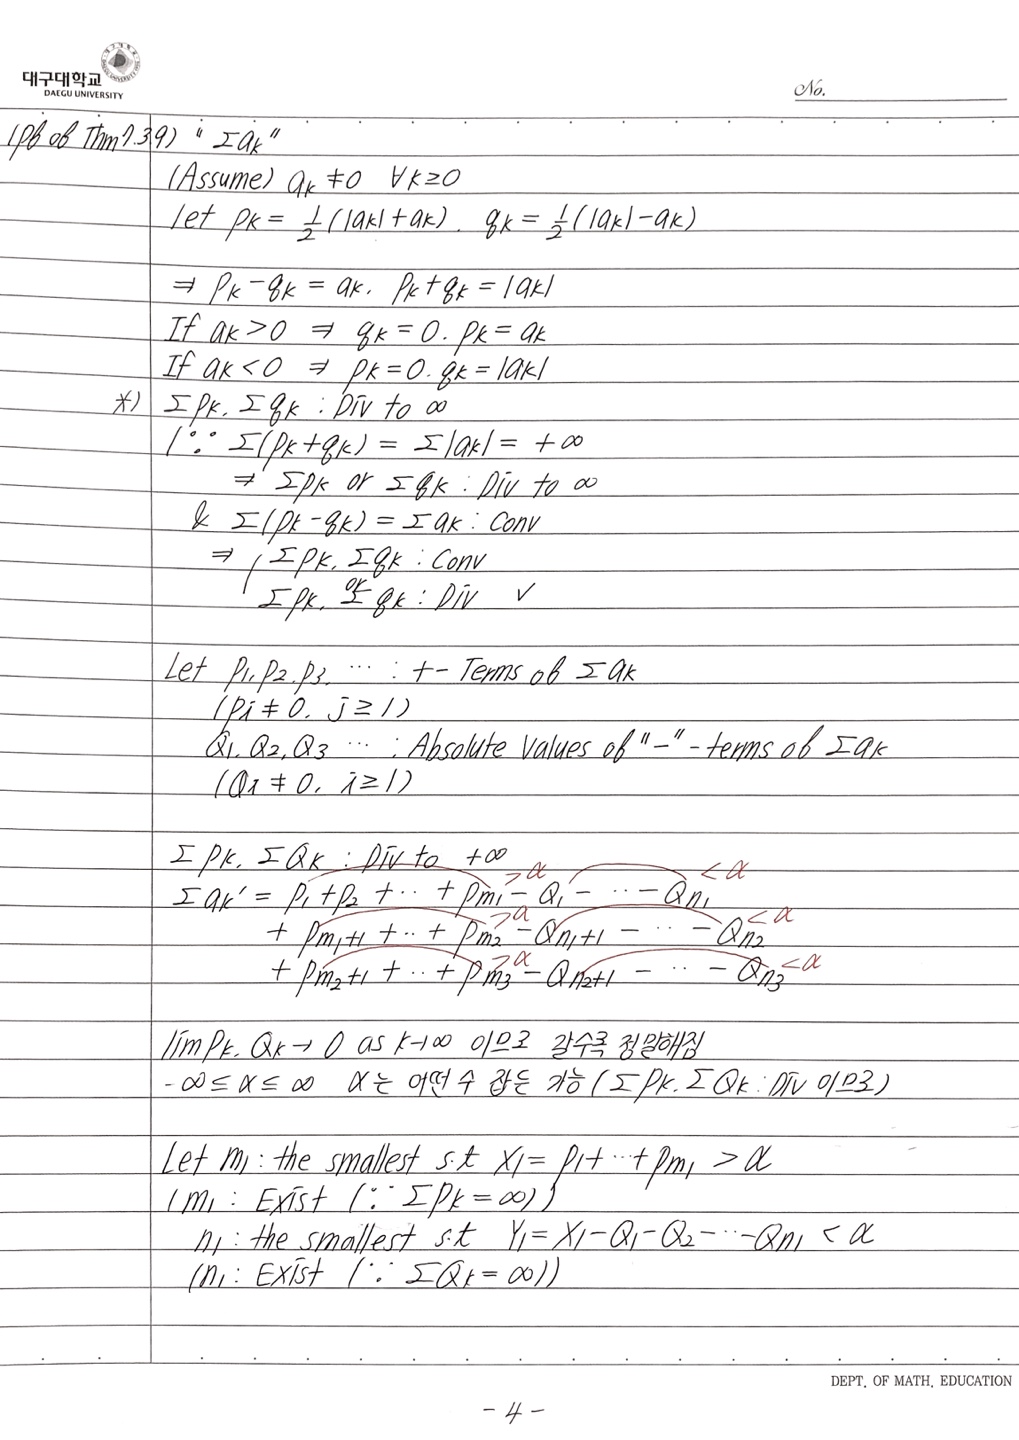 대구대학교
DAEGU UNIVERSITY
No.
(pf of Thm 7.39) " Σaₖ "
(Assume) aₖ ≠ 0 ∀k≥0
let pₖ = 1/2(|aₖ|+aₖ). qₖ = 1/2(|aₖ|-aₖ)
⇒ pₖ-qₖ = aₖ. pₖ+qₖ = |aₖ|
If aₖ>0 ⇒ qₖ=0. pₖ=aₖ
If aₖ<0 ⇒ pₖ=0. qₖ=|aₖ|
*) Σpₖ. Σqₖ : Div to ∞
(∵ Σ(pₖ+qₖ) = Σ|aₖ| = +∞
⇒ Σpₖ or Σqₖ : Div to ∞
& Σ(pₖ-qₖ) = Σaₖ : Conv
⇒ ( Σpₖ. Σqₖ : Conv
or
Σpₖ. Σqₖ : Div ✓
Let p₁. p₂. p₃. ⋯ : +- Terms of Σaₖ
(pⱼ ≠ 0. j ≥ 1)
Q₁. Q₂. Q₃ ⋯ : Absolute Values of "-"-terms of Σaₖ
(Qᵢ ≠ 0. i ≥ 1)
Σpₖ. ΣQₖ : Div to +∞
Σaₖ' = p₁+p₂+⋯+pₘ₁ >α -Q₁-⋯-Qₙ₁ <α
+ pₘ₁₊₁+⋯+pₘ₂ >α -Qₙ₁₊₁-⋯-Qₙ₂ <α
+ pₘ₂₊₁+⋯+pₘ₃ >α -Qₙ₂₊₁-⋯-Qₙ₃ <α
lim pₖ. Qₖ → 0 as k→∞ 이므로 갈수록 정밀해짐
-∞ ≤ α ≤ ∞ α는 어떤 수 잡든 가능 (Σpₖ. ΣQₖ : Div 이므로)
Let m₁ : the smallest s.t X₁ = p₁+⋯+pₘ₁ > α
(m₁ : Exist (∵ Σpₖ = ∞))
n₁ : the smallest s.t Y₁ = X₁-Q₁-Q₂-⋯-Qₙ₁ < α
(n₁ : Exist (∵ ΣQₖ = ∞))
DEPT. OF MATH. EDUCATION
- 4 -